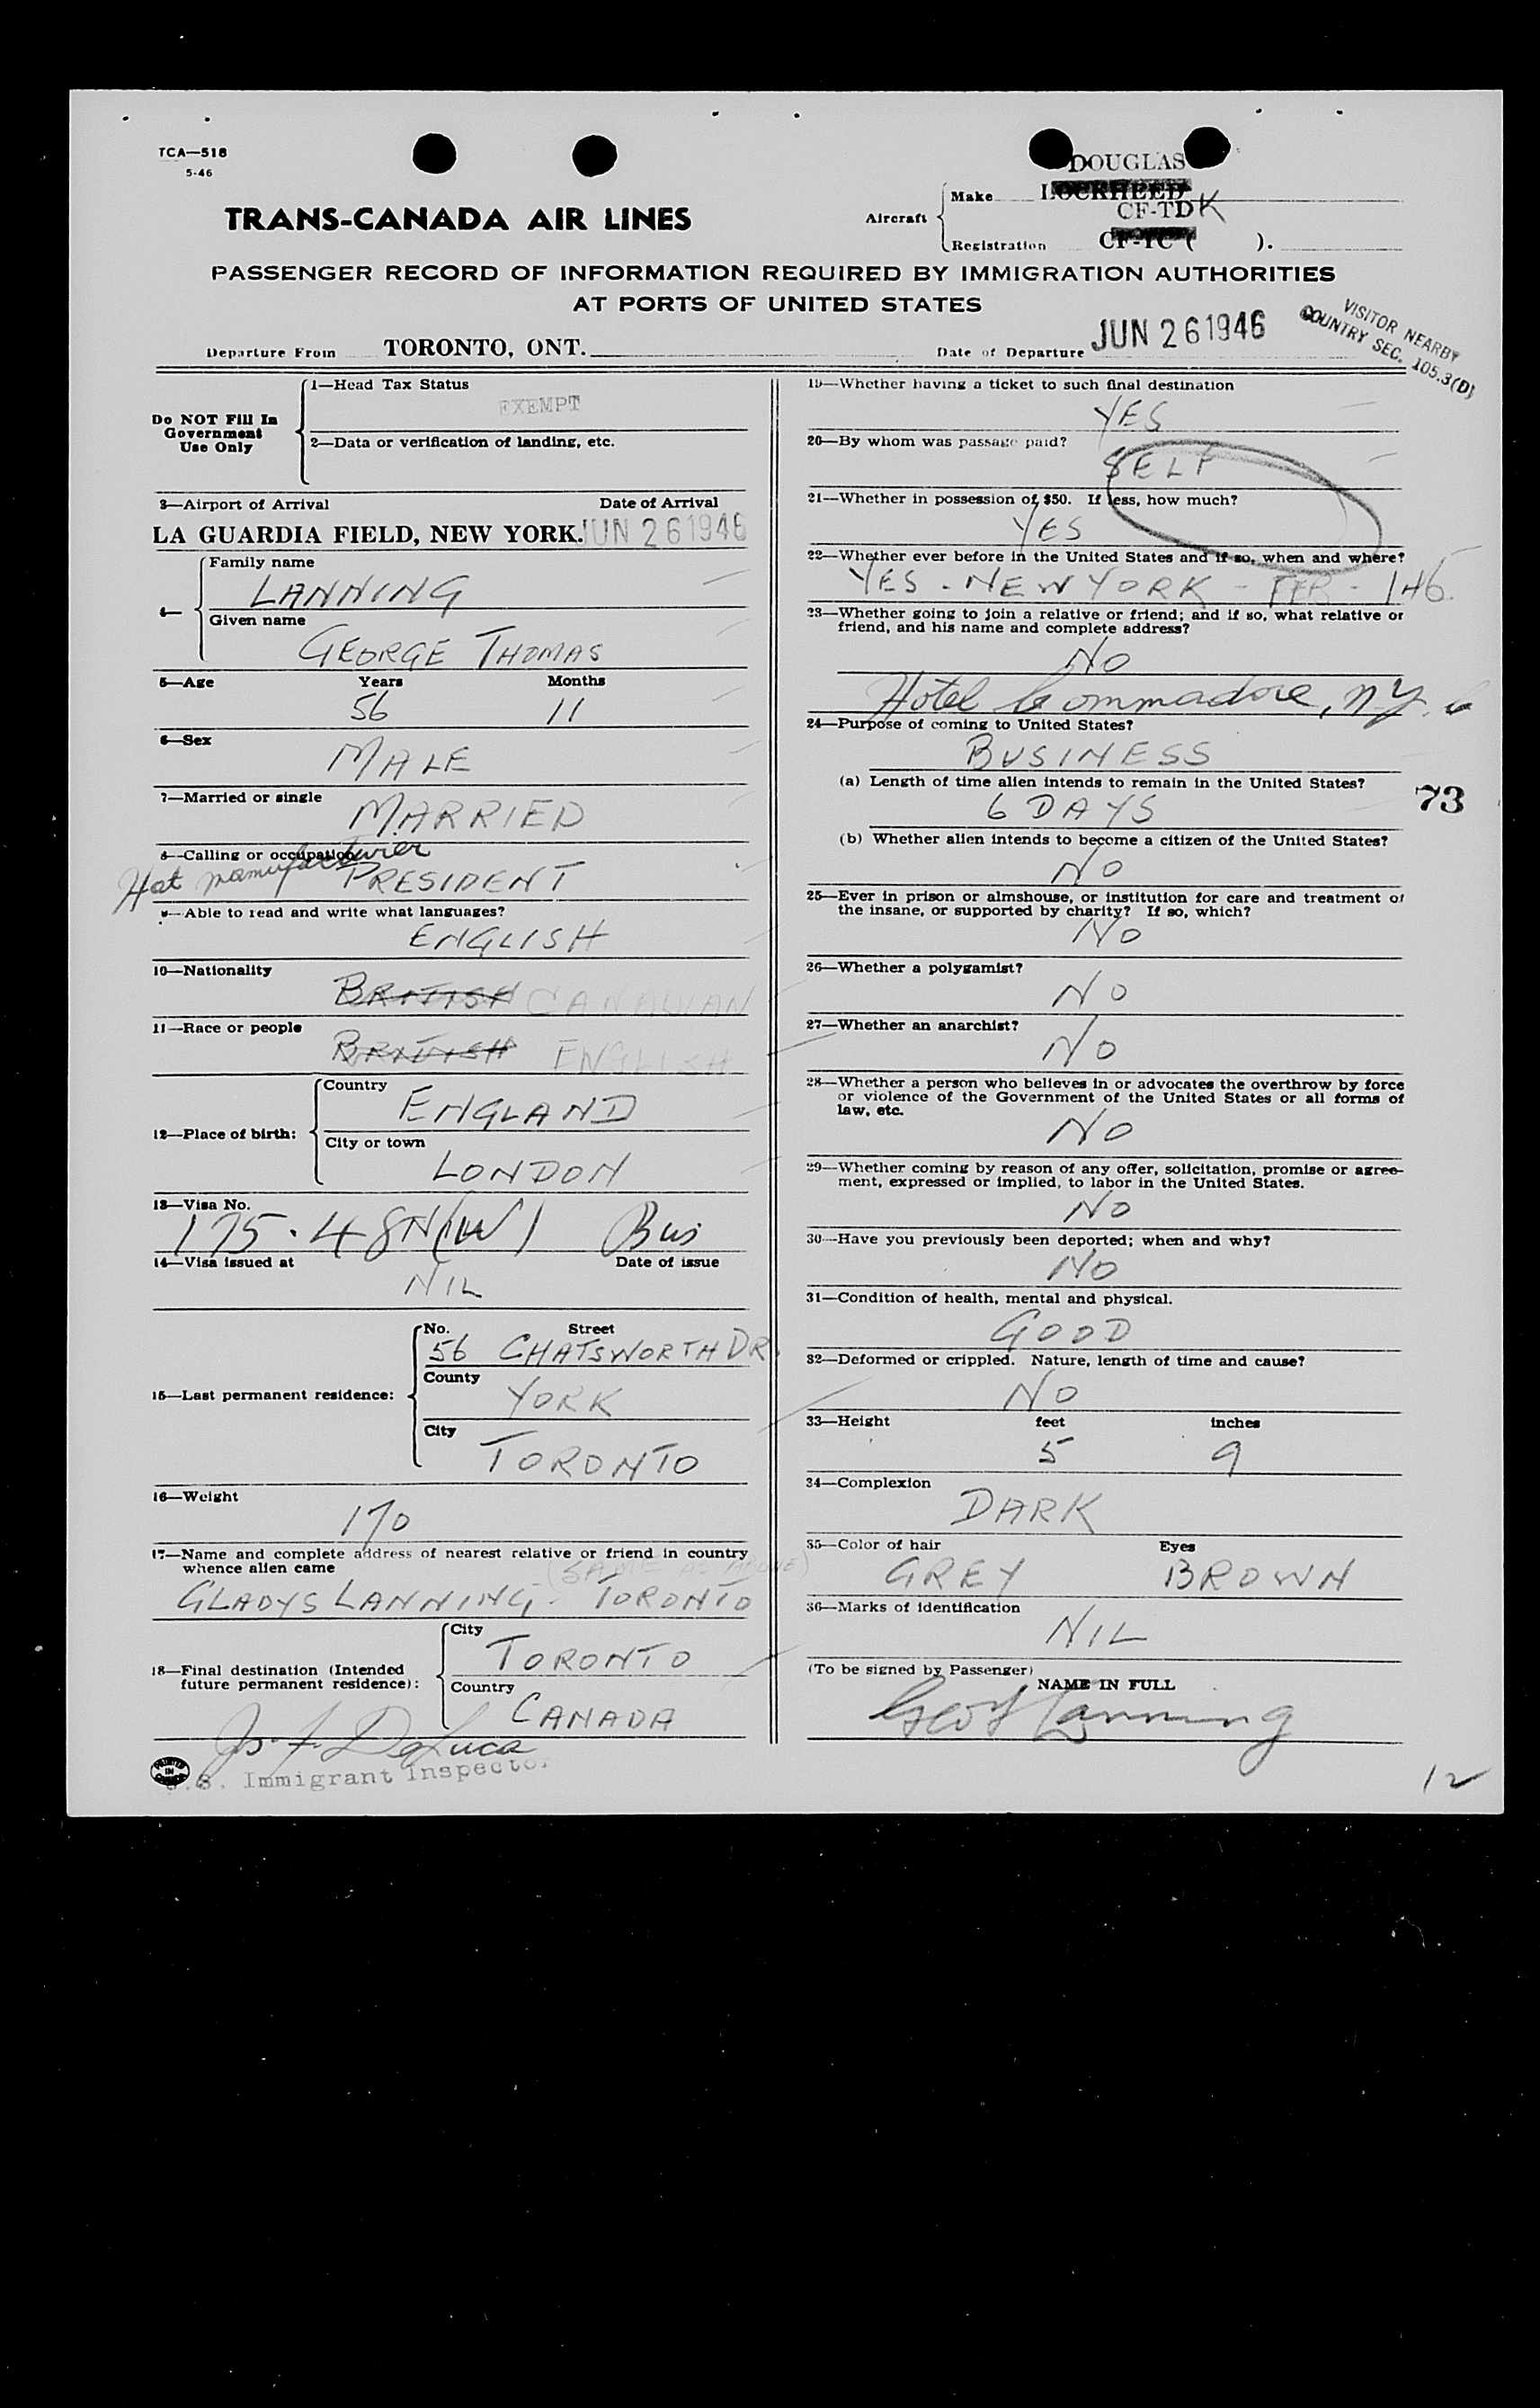 TCA—518
5-46
TRANS-CANADA AIR LINES
DOUGLAS
Aircraft
Make LOCKHEED
CF-TDK
Registration CF-TC ( ).
PASSENGER RECORD OF INFORMATION REQUIRED BY IMMIGRATION AUTHORITIES
AT PORTS OF UNITED STATES
Departure From TORONTO, ONT.
Date of Departure JUN 26 1946
VISITOR NEARBY
COUNTRY SEC. 105.3(D)
Do NOT Fill In
Government
Use Only
1—Head Tax Status
EXEMPT
2—Data or verification of landing, etc.
3—Airport of Arrival Date of Arrival
LA GUARDIA FIELD, NEW YORK. JUN 26 1946
4—
Family name
LANNING
Given name
GEORGE THOMAS
5—Age Years Months
56 11
6—Sex
MALE
7—Married or single
MARRIED
8—Calling or occupation
Hat manufacturer
PRESIDENT
9—Able to read and write what languages?
ENGLISH
10—Nationality
BRITISH CANADIAN
11—Race or people
BRITISH ENGLISH
12—Place of birth:
Country
ENGLAND
City or town
LONDON
13—Visa No.
175.48N(W) Bus
14—Visa issued at Date of issue
NIL
15—Last permanent residence:
No. Street
56 CHATSWORTH DR.
County
YORK
City
TORONTO
16—Weight
170
17—Name and complete address of nearest relative or friend in country
whence alien came
(SAME AS ABOVE)
GLADYS LANNING - TORONTO
18—Final destination (Intended
future permanent residence):
City
TORONTO
Country
CANADA
DeLuca
U.S. Immigrant Inspector
PRINTED
IN
CANADA
19—Whether having a ticket to such final destination
YES
20—By whom was passage paid?
SELF
21—Whether in possession of $50. If less, how much?
YES
22—Whether ever before in the United States and if so, when and where?
YES - NEW YORK - FEB - 146.
23—Whether going to join a relative or friend; and if so, what relative or
friend, and his name and complete address?
NO
Hotel Commadore, N.Y.C
24—Purpose of coming to United States?
BUSINESS
(a) Length of time alien intends to remain in the United States?
6 DAYS
73
(b) Whether alien intends to become a citizen of the United States?
NO
25—Ever in prison or almshouse, or institution for care and treatment of
the insane, or supported by charity? If so, which?
NO
26—Whether a polygamist?
NO
27—Whether an anarchist?
NO
28—Whether a person who believes in or advocates the overthrow by force
or violence of the Government of the United States or all forms of
law, etc.
NO
29—Whether coming by reason of any offer, solicitation, promise or agree-
ment, expressed or implied, to labor in the United States.
NO
30—Have you previously been deported; when and why?
NO
31—Condition of health, mental and physical.
GOOD
32—Deformed or crippled. Nature, length of time and cause?
NO
33—Height feet inches
5 9
34—Complexion
DARK
35—Color of hair Eyes
GREY BROWN
36—Marks of identification
NIL
(To be signed by Passenger)
NAME IN FULL
Geo T Lanning
12